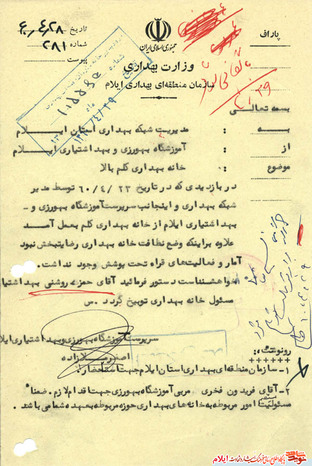 تاریخ ۶۰/۴/۲۸
شماره ۲۸۱
پیوست
جمهوری اسلامی ایران
وزارت بهداری
سازمان منطقه‌ای بهداری ایلام
پاراف
بسمه تعالی
به : مدیریت شبکه بهداری استان ایلام
از : آموزشگاه بهورزی و بهداشتیاری ایلام
موضوع : خانه بهداری کلم بالا
در بازدیدی که در تاریخ ۶۰/۴/۲۳ توسط مدیر
شبکه بهداری و اینجانب سرپرست آموزشگاه بهورزی و
بهداشتیاری ایلام از خانه بهداری کلم بعمل آمد
علاوه براینکه وضع نظافت خانه بهداری رضایتبخش نبود
آمار و فعالیت‌های قراء تحت پوشش وجود نداشت.
خواهشمنداست دستور فرمائید آقای حمزه روشنی بهداشتیار
مسئول خانه بهداری توبیخ گردد. س
سرپرست آموزشگاه بهورزی و بهداشتیاری ایلام
رونوشت :
۱- سازمان منطقه‌ای بهداری استان ایلام جهت استحضار.
۲- آقای فریدون فخری مربی آموزشگاه بهورزی جهت اقدام لازم. ضمنا
مسئولیت امور مربوطه به خانه‌های بهداری حوزه مربوطه بعهده شما می باشد.